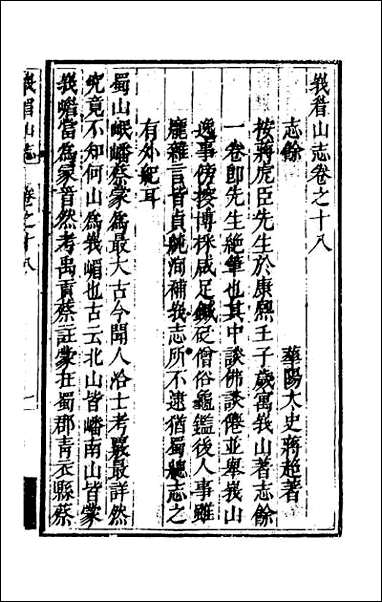 峩眉山志卷之十八
志餘　華陽太史蔣超著
按蔣虎臣先生於康熙壬子歲寓峩山著志餘
一卷即先生絕筆也其中談佛談僊並舉峩山
逸事傍按博採咸足鍼砭僧俗龜鑑後人事雖
龐雜言皆貞純洵補峩志所不逮猶蜀總志之
有外紀耳
蜀山岷嶓蔡蒙為最大古今聞人洽士考覈最詳然
究竟不知何山為峩嵋也古云北山皆嶓南山皆蒙
峩嶓當為蒙首然考禹貢蔡註蒙在蜀郡青衣縣蔡
峩眉山志
卷之十八
一